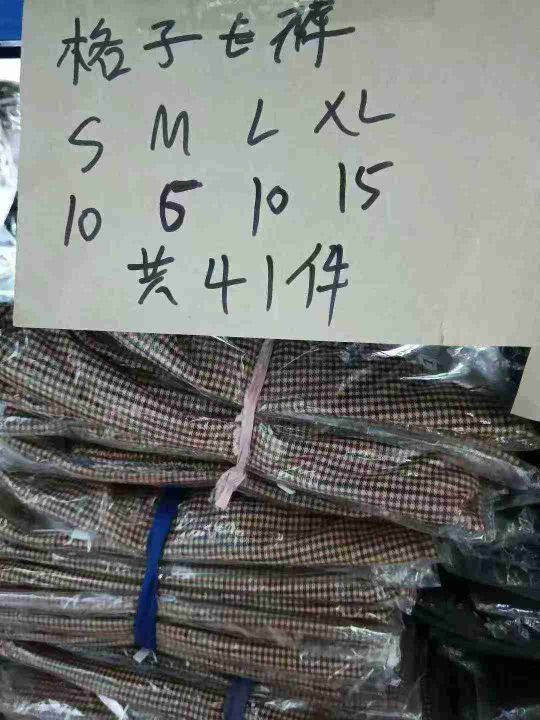 格子长裤
S M L XL
10 6 10 15
共41件